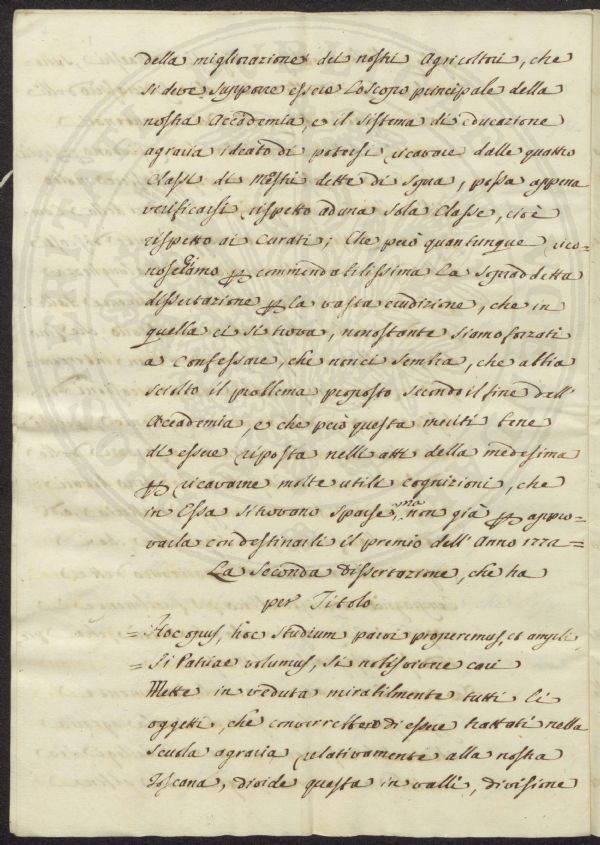 della migliorazione dei nostri Agricoltori, che
si deve supporre essere Loscopo principale della
nostra Accademia, e il sistema di educazione
agraria ideato di potersi ricavare dalle quattro
Classi di Mestri dette di sopra, possa appena
verificarsi rispetto aduna sola Classe, cioè
rispetto ai Curati; Che però quantunque rico-
nosciamo p commendabilissima La Sopraddetta
dissertazione p la vasta erudizione, che in
quella ci si trova, nonostante siamo forzati
a Confessare, che nonci sembra, che abbia
sciolto il problema proposto secondo il fine dell'
Accademia, e che però questa meriti bene
di essere riposta nelli atti della medesima
p ricavarne molte utili cognizioni, che
in Essa sitrovano sparse, ma non già p appro=
varla condestinarli il premio dell' Anno 1772=
La Seconda dissertazione, che ha
per Titolo
=Hoc opus, hoc studium parvi properemus, et ampli,
=Si Patriae volumus, si nobis vivere cari
Mette in veduta mirabilmente tutti li
oggetti, che converrebbero di essere trattati nella
scuola agraria relativamente alla nostra
Toscana, divide questa in valli, divisione